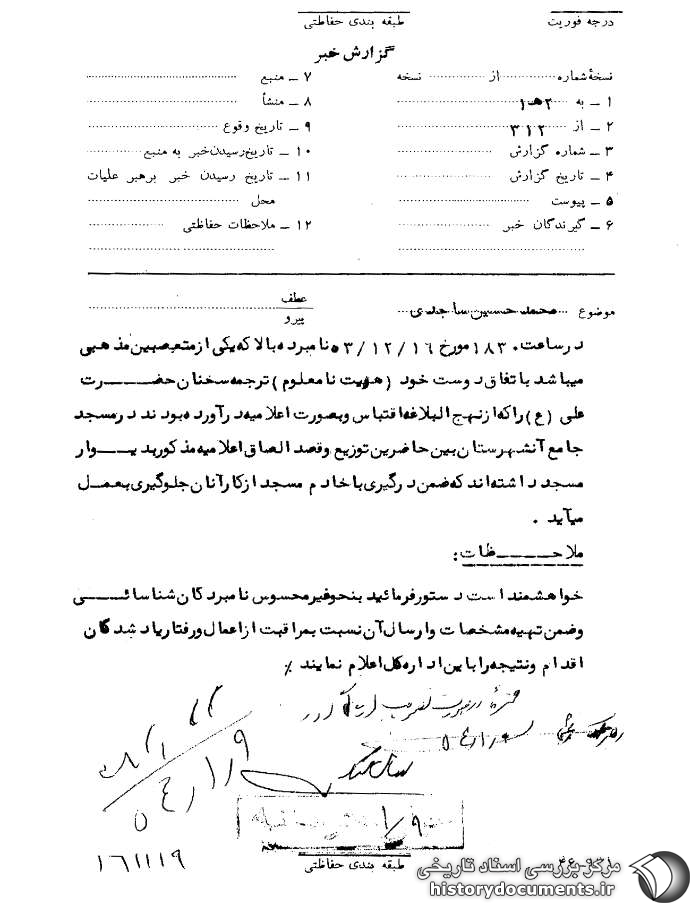 درجه فوریت
طبقه بندی حفاظتی
گزارش خبر
نسخهٔ شماره ............ از ............ نسخه
۱ ـ به ۲هـ۱
۲ ـ از ۳۱۲
۳ ـ شماره گزارش
۴ ـ تاریخ گزارش
۵ ـ پیوست
۶ ـ گیرندگان خبر
۷ ـ منبع
۸ ـ منشأ
۹ ـ تاریخ وقوع
۱۰ ـ تاریخ رسیدن خبر به منبع
۱۱ ـ تاریخ رسیدن خبر برهبر علیات
محل
۱۲ ـ ملاحظات حفاظتی
موضوع محمد حسین ساجدی
عطف
پیرو
در ساعت ۱۸۳۰ مورخ ۵۳/۱۲/۱۶ نامبرده بالا که یکی از متعصبین مذهبی
میباشد باتفاق دوست خود (هویت نامعلوم) ترجمه سخنان حضرت
علی (ع) را که از نهج البلاغه اقتباس وبصورت اعلامیه در آورده بودند در مسجد
جامع آنشهرستان بین حاضرین توزیع و قصد الصاق اعلامیه مذکور بدیوار
مسجد داشته اند که ضمن درگیری با خادم مسجد از کار آنان جلوگیری بعمل
میآید .
ملاحظات :
خواهشمند است دستور فرمائید بنحو غیر محسوس نامبردگان شناسائی
وضمن تهیه مشخصات وارسال آن نسبت بمراقبت از اعمال ورفتار یاد شدگان
اقدام ونتیجه را باین اداره کل اعلام نمایند ٪
۵۴/۱/۹
۱۶۱۱۱۹
طبقه بندی حفاظتی
مرکز بررسی اسناد تاریخی
historydocuments.ir